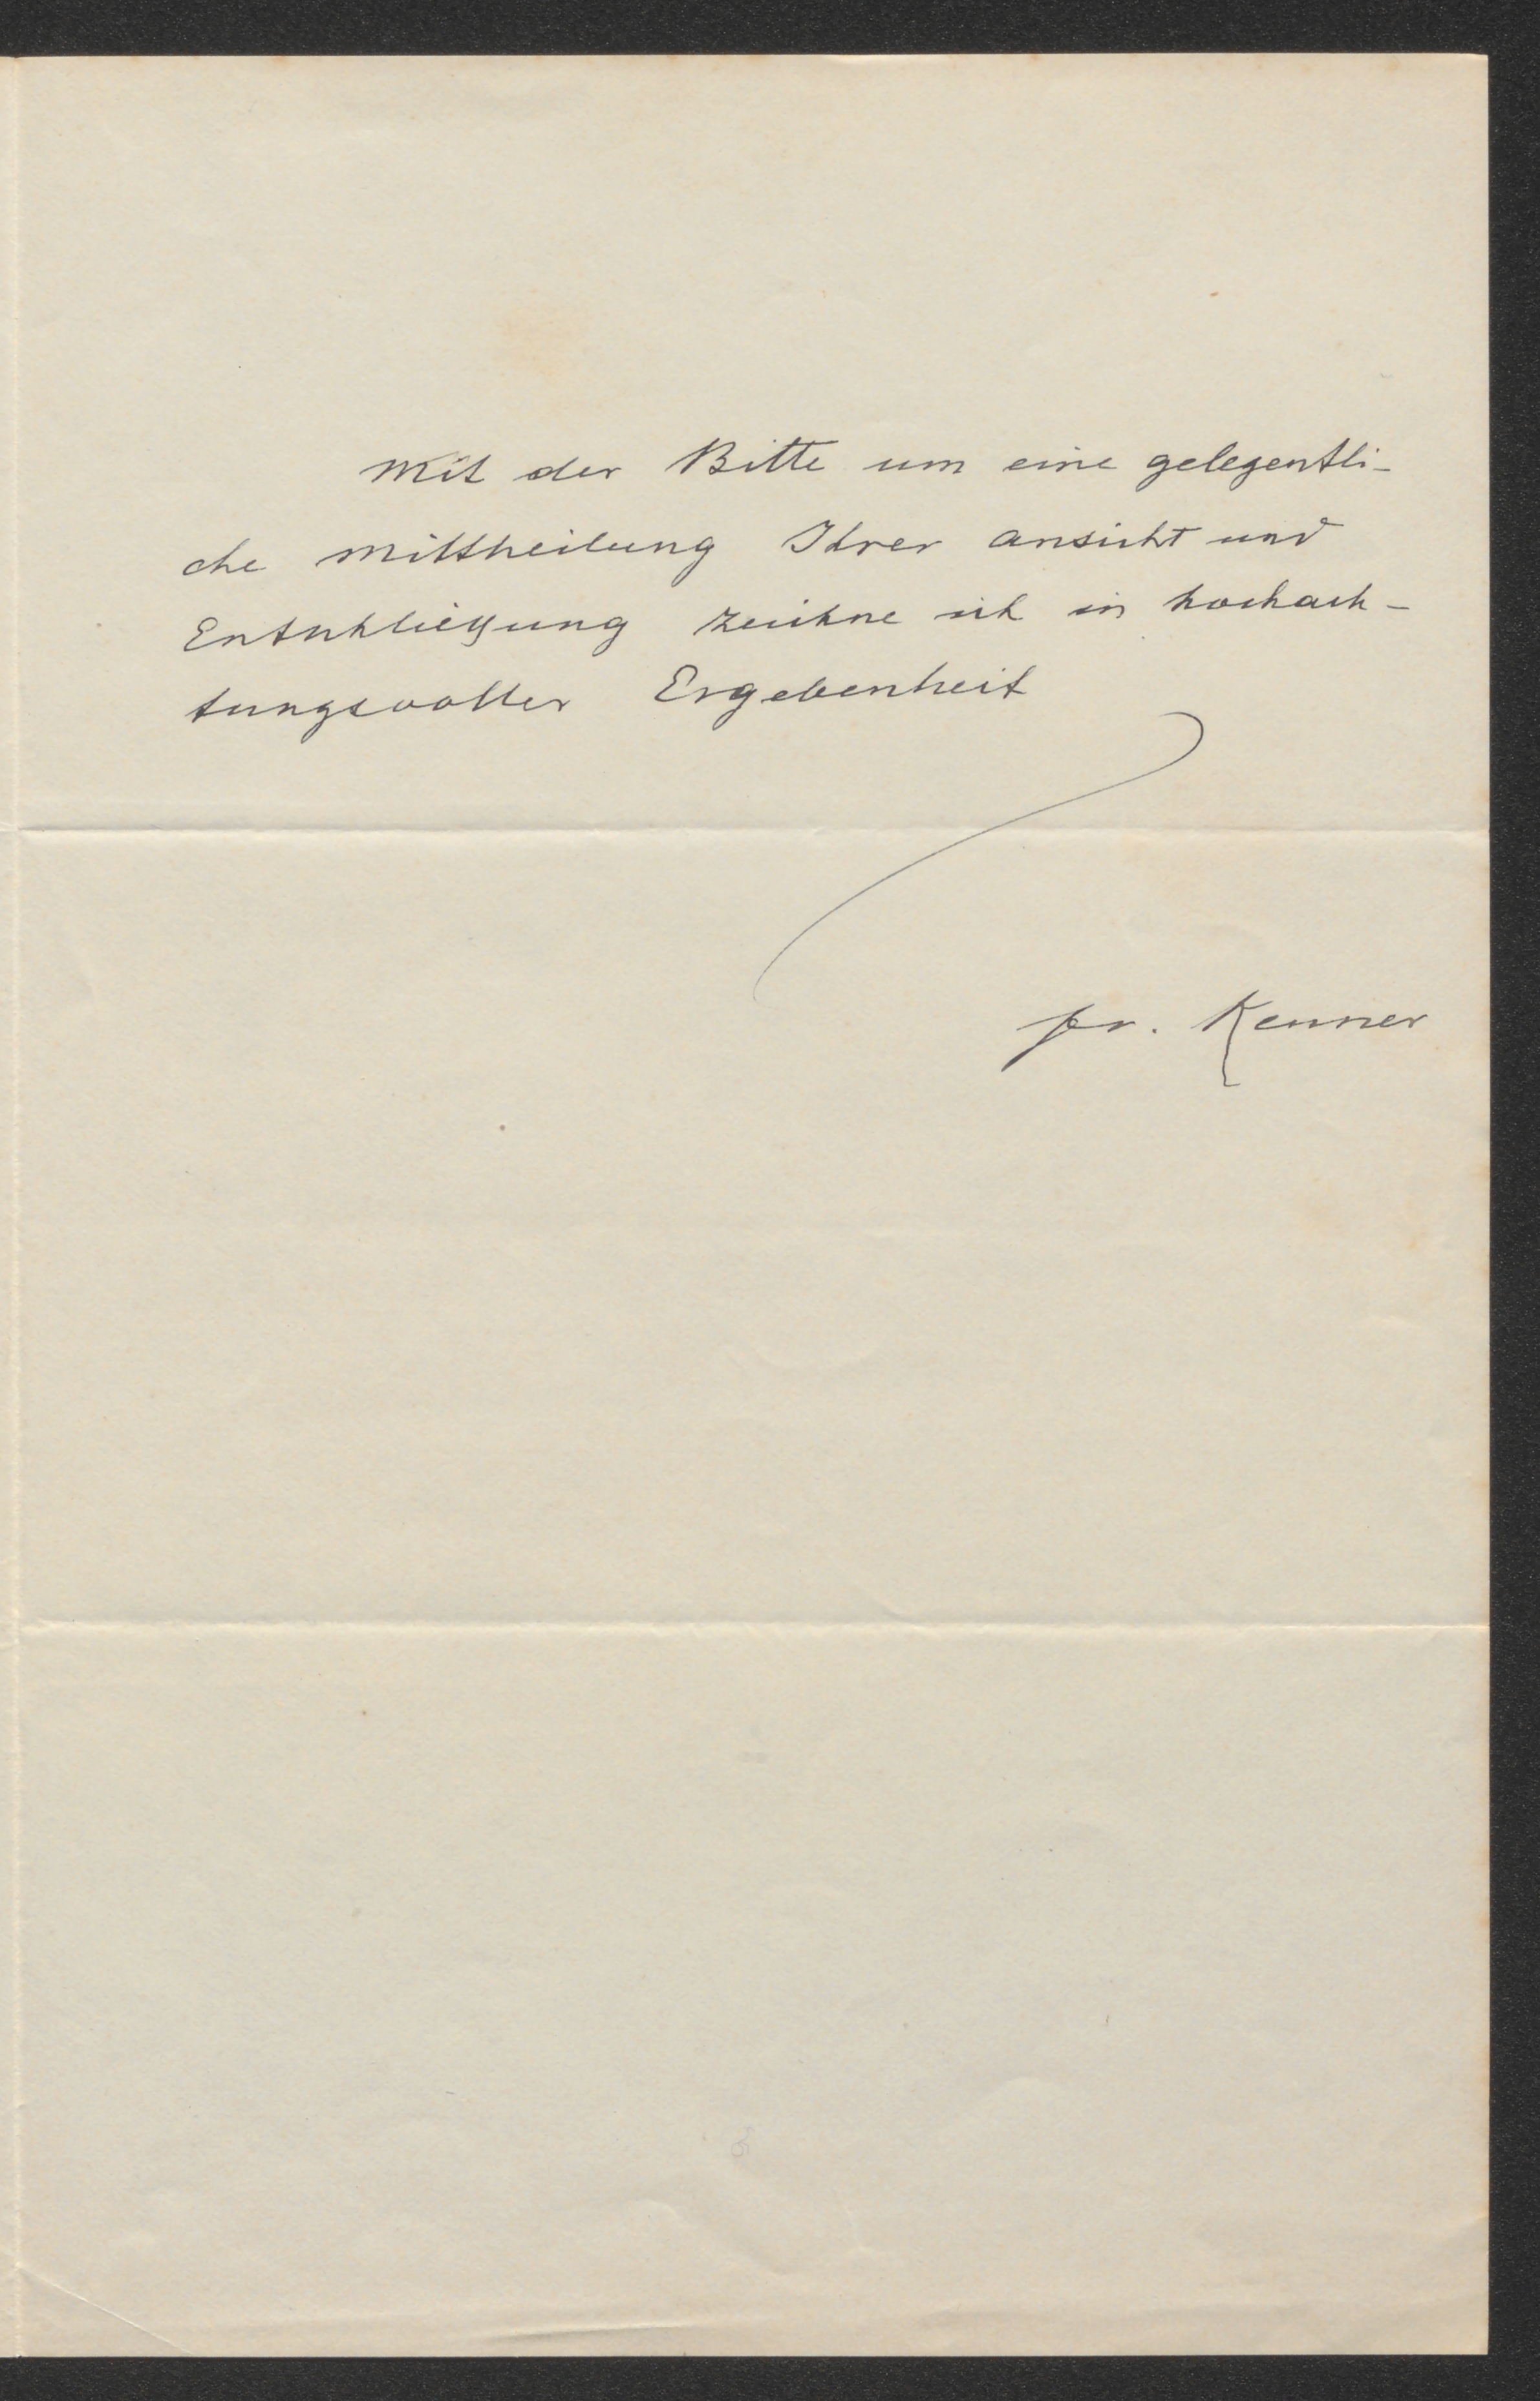 Mit der Bitte um eine gelegentli-
che Mittheilung Ihrer Ansicht und
Entschließung zeichne ich in hochach-
tungsvoller Ergebenheit
Fr. Kenner